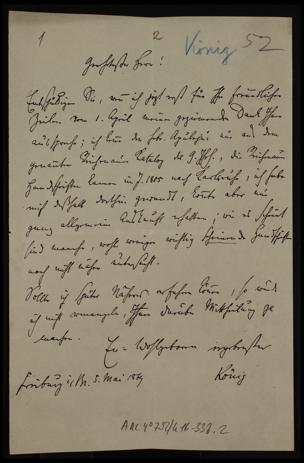 1
2
König
52
Geehrtester Herr!
Entschuldigen Sie, wenn ich jetzt erst für Ihre freundlichen
Zeilen vom 1. April meinen geziemenden Dank Ihnen
ausspreche; ich kenne den aus dem
Reichenauer Katalog des 9. Jhh., die Reichenauer
Handschriften kamen im J. 1805 nach Karlsruhe, ich habe
mich deßhalb dorthin gewendt, konnte aber nur
ganz allgemeine Auskunft erhalten; wie es scheint
sind manche, wohl weniger wichtig scheinende Handschriften
noch nicht näher untersucht.
Sollte ich später Näheres erfahren können, so würde
ich nicht ermangeln, Ihnen darüber Mittheilung zu
machen.
Eu- Wohlgeboren ergebenster
Freiburg i/Br. 5. Mai 18
König